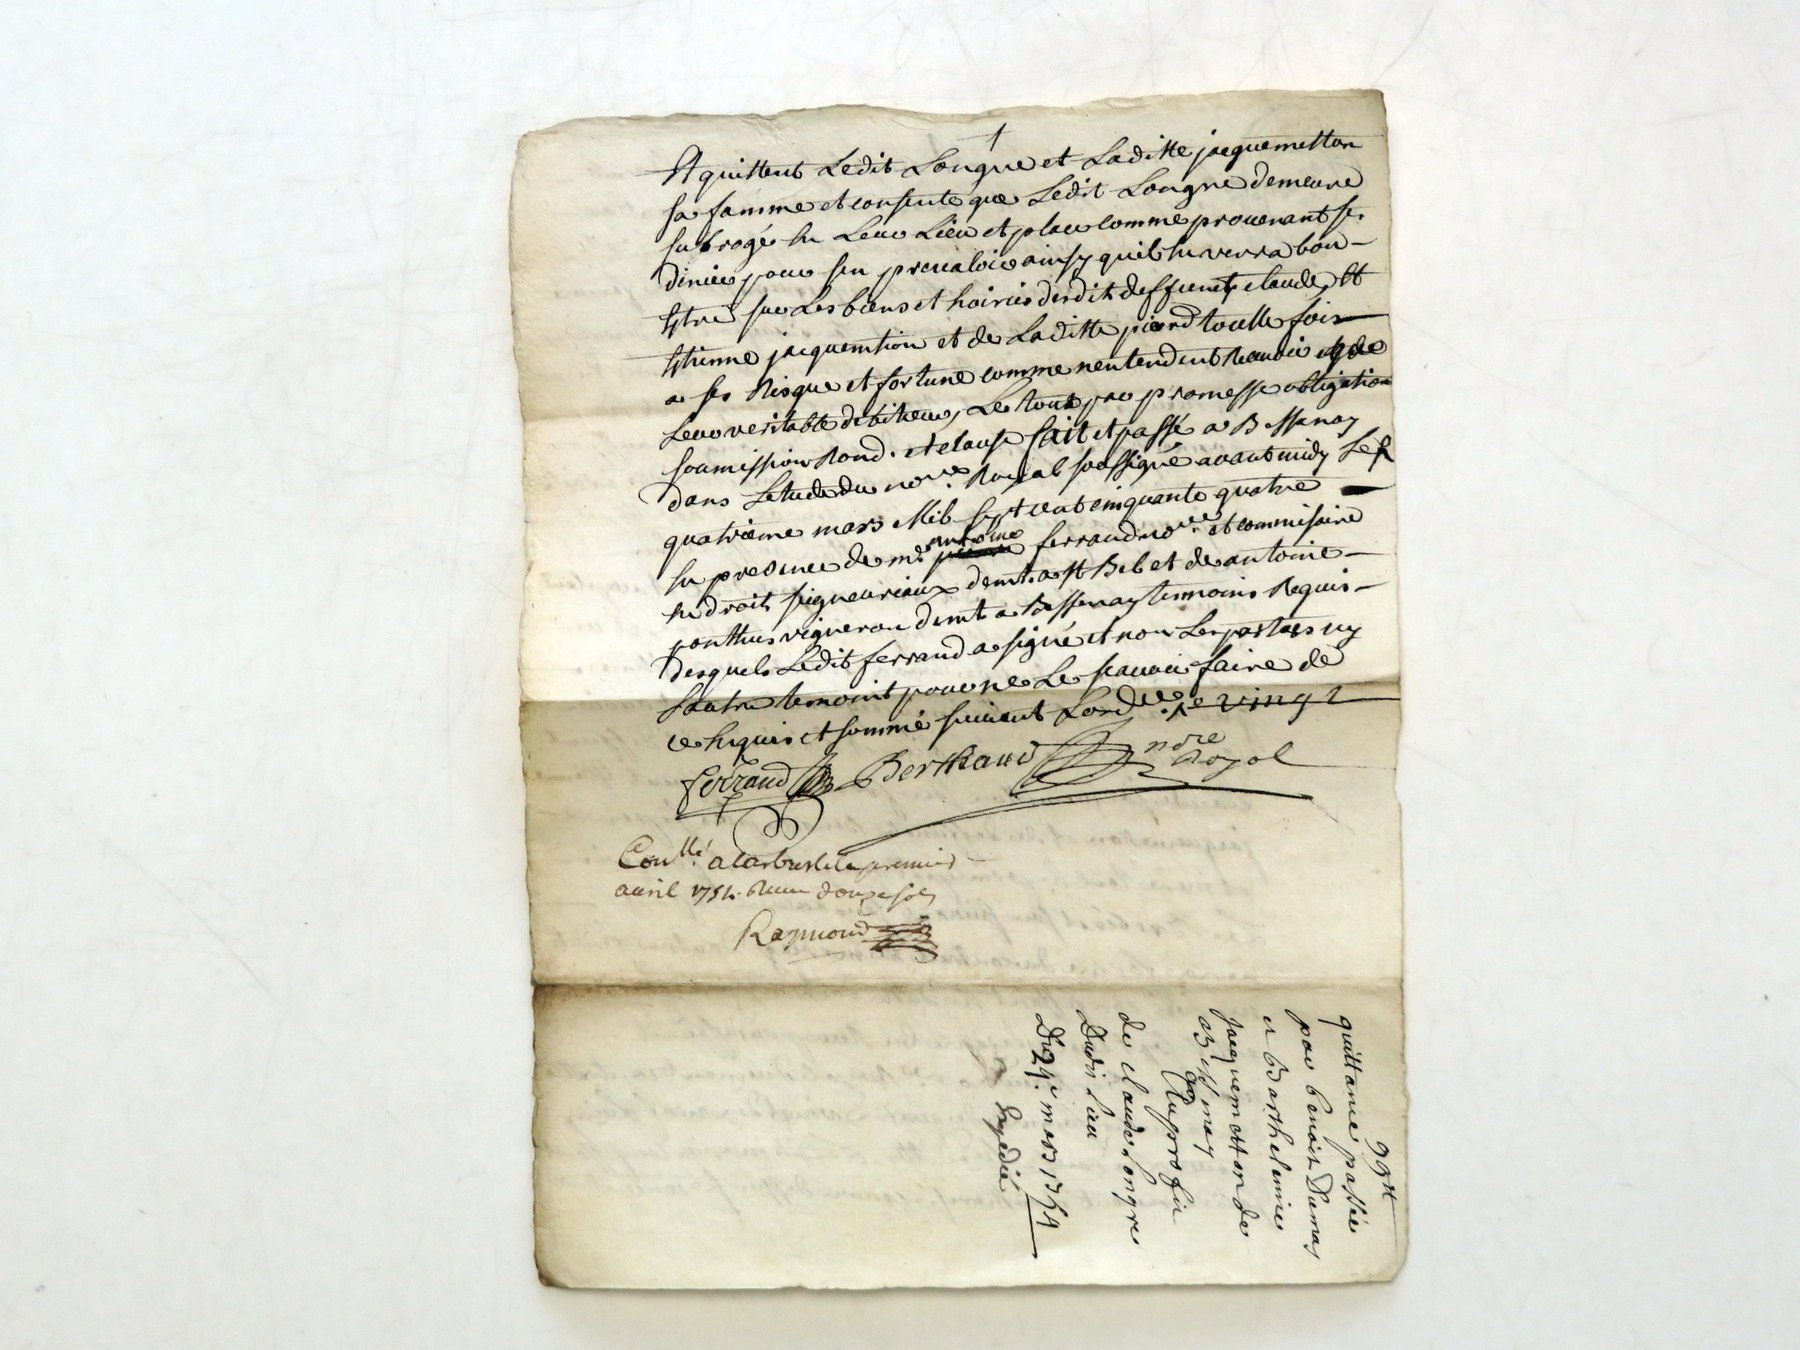 Et quittent Ledit Longre et Laditte jacquemetton
sa famme et consente que Ledit Longre demeure
subrogé en Leur Lieu et place comme provenant se
deniers pour sen prevaloir ainsy quil en verra bon
Estre sur Les biens et hoiries desdits deffunts claude Et
Etienne jacquemtion et de Laditte pierrd touttefois
a ses Risque et fortune comme nentendent Recevoir que
Leur veritable debiteur, Le tout par promesse obligation
soumission Rond. et clause fait et passé a Bessenay
dans Letude du nore Royal soussigné avant midy Le
quatrieme mars Mil sept cent cinquante quatre
En presence de me antoine ferrand nore et commissaire
En droits seigneuriaux demt. a St Bel et de antoine
ponthus vigneron demt a Bessenay temoins Requis
desquels Ledit ferrand a signé et non Les parties ny
Lautre temoint pour ne Le scavoir faire de
ce Enquis et sommé suivant Lordce
Ferrand Berthaud nore Royal
Conllé a Larbresle le premier
avril 1754. Recu douze sols
Raymond
quittance passée
par benoit Dumas
et Barthelemie
Jacquemetton de
Au profit
de claude Longre
Dudit Lieu
Du 4e mars 1754
Expedié